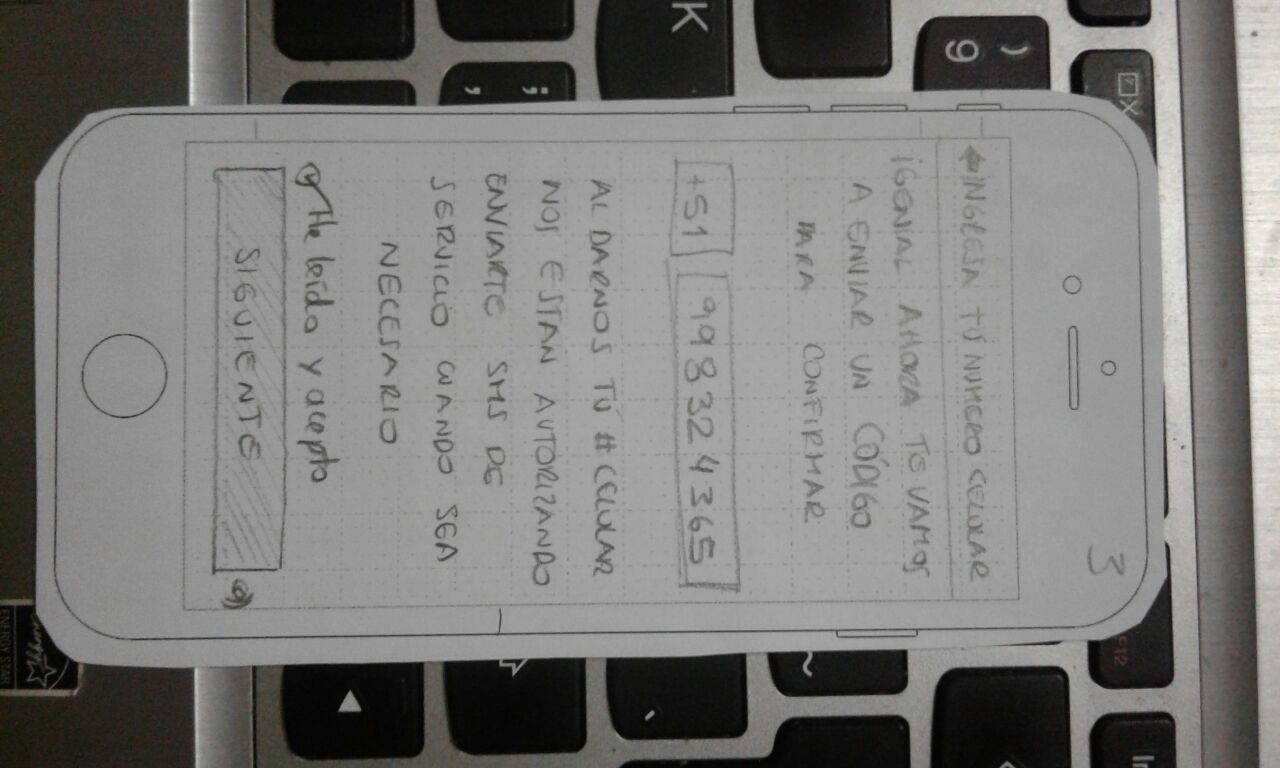 3
← INGRESA TU NUMERO CELULAR
¡GENIAL AHORA TE VAMOS
A ENVIAR UN CÓDIGO
PARA CONFIRMAR
+51 998324365
AL DARNOS TU # CELULAR
NOS ESTAN AUTORIZANDO
ENVIARTE SMS DE
SERVICIO CUANDO SEA
NECESARIO
He leído y acepto
SIGUIENTE
K
) 9
; ,
F12
In
ENERGY STAR